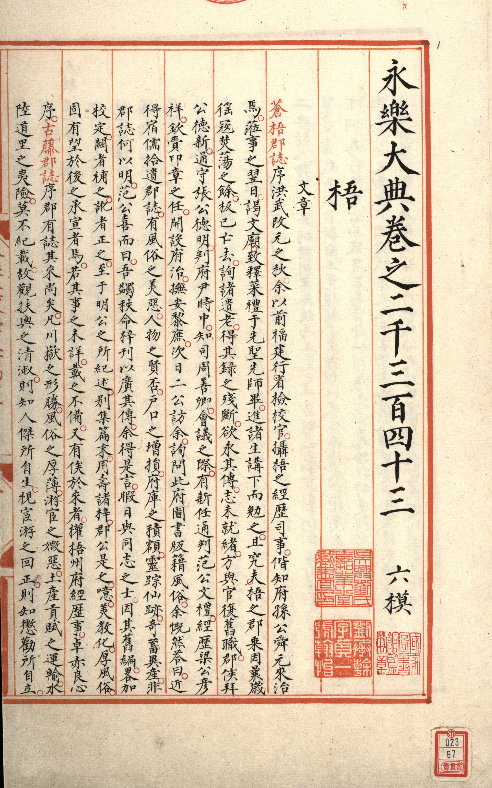 永樂大典卷之二千三百四十三 六模
梧
文章
蒼梧郡誌序洪武改元之秋余以前福建行省檢校官攝梧之經歷司事偕知府孫公舜元來治
馬蒞事之翌日謁文廟致釋菜禮于先聖先師畢進諸生講下而勉之且究夫梧之郡乘因
徭寇焚蕩之餘板已亡去詢諸遺老得其錄之殘斷欲永其傳志未就緒方與官復舊職郡侯拜
公德新通守張公德明判府尹時中知司周善卿會議之際有新任通判范公文禮經歷梁公彥
祥欽賫印章之任開設府治撫安黎庶次日二公訪余詢問此府圖書版籍風俗余慨然答曰近
得宿儒拾遺郡誌有風俗之美惡人物之賢否戶口之增損府庫之積額靈踪仙跡奇蓄異產非
郡誌何以明范公喜而曰吾蠲秩命梓刊以廣其傳余得是言暇日與同志之士因其舊編畧加
校定闕者補之訛者正之至于明公之所紀述別集篇末用壽諸梓郡公是之噫美教化厚風俗
固有望於後之承宣者焉若其事之未詳載之不備又有俟於來者權梧州府經歷事卓亦良心
序古藤郡誌序郡有誌其來尚矣凡川嶽之形勝風俗之厚薄游宦之媺惡土產貢賦之運輸水
陸道里之夷險莫不紀載故觀扶輿之清淑則知人傑所自生視宦游之回正則知懲勸所自立
023
67